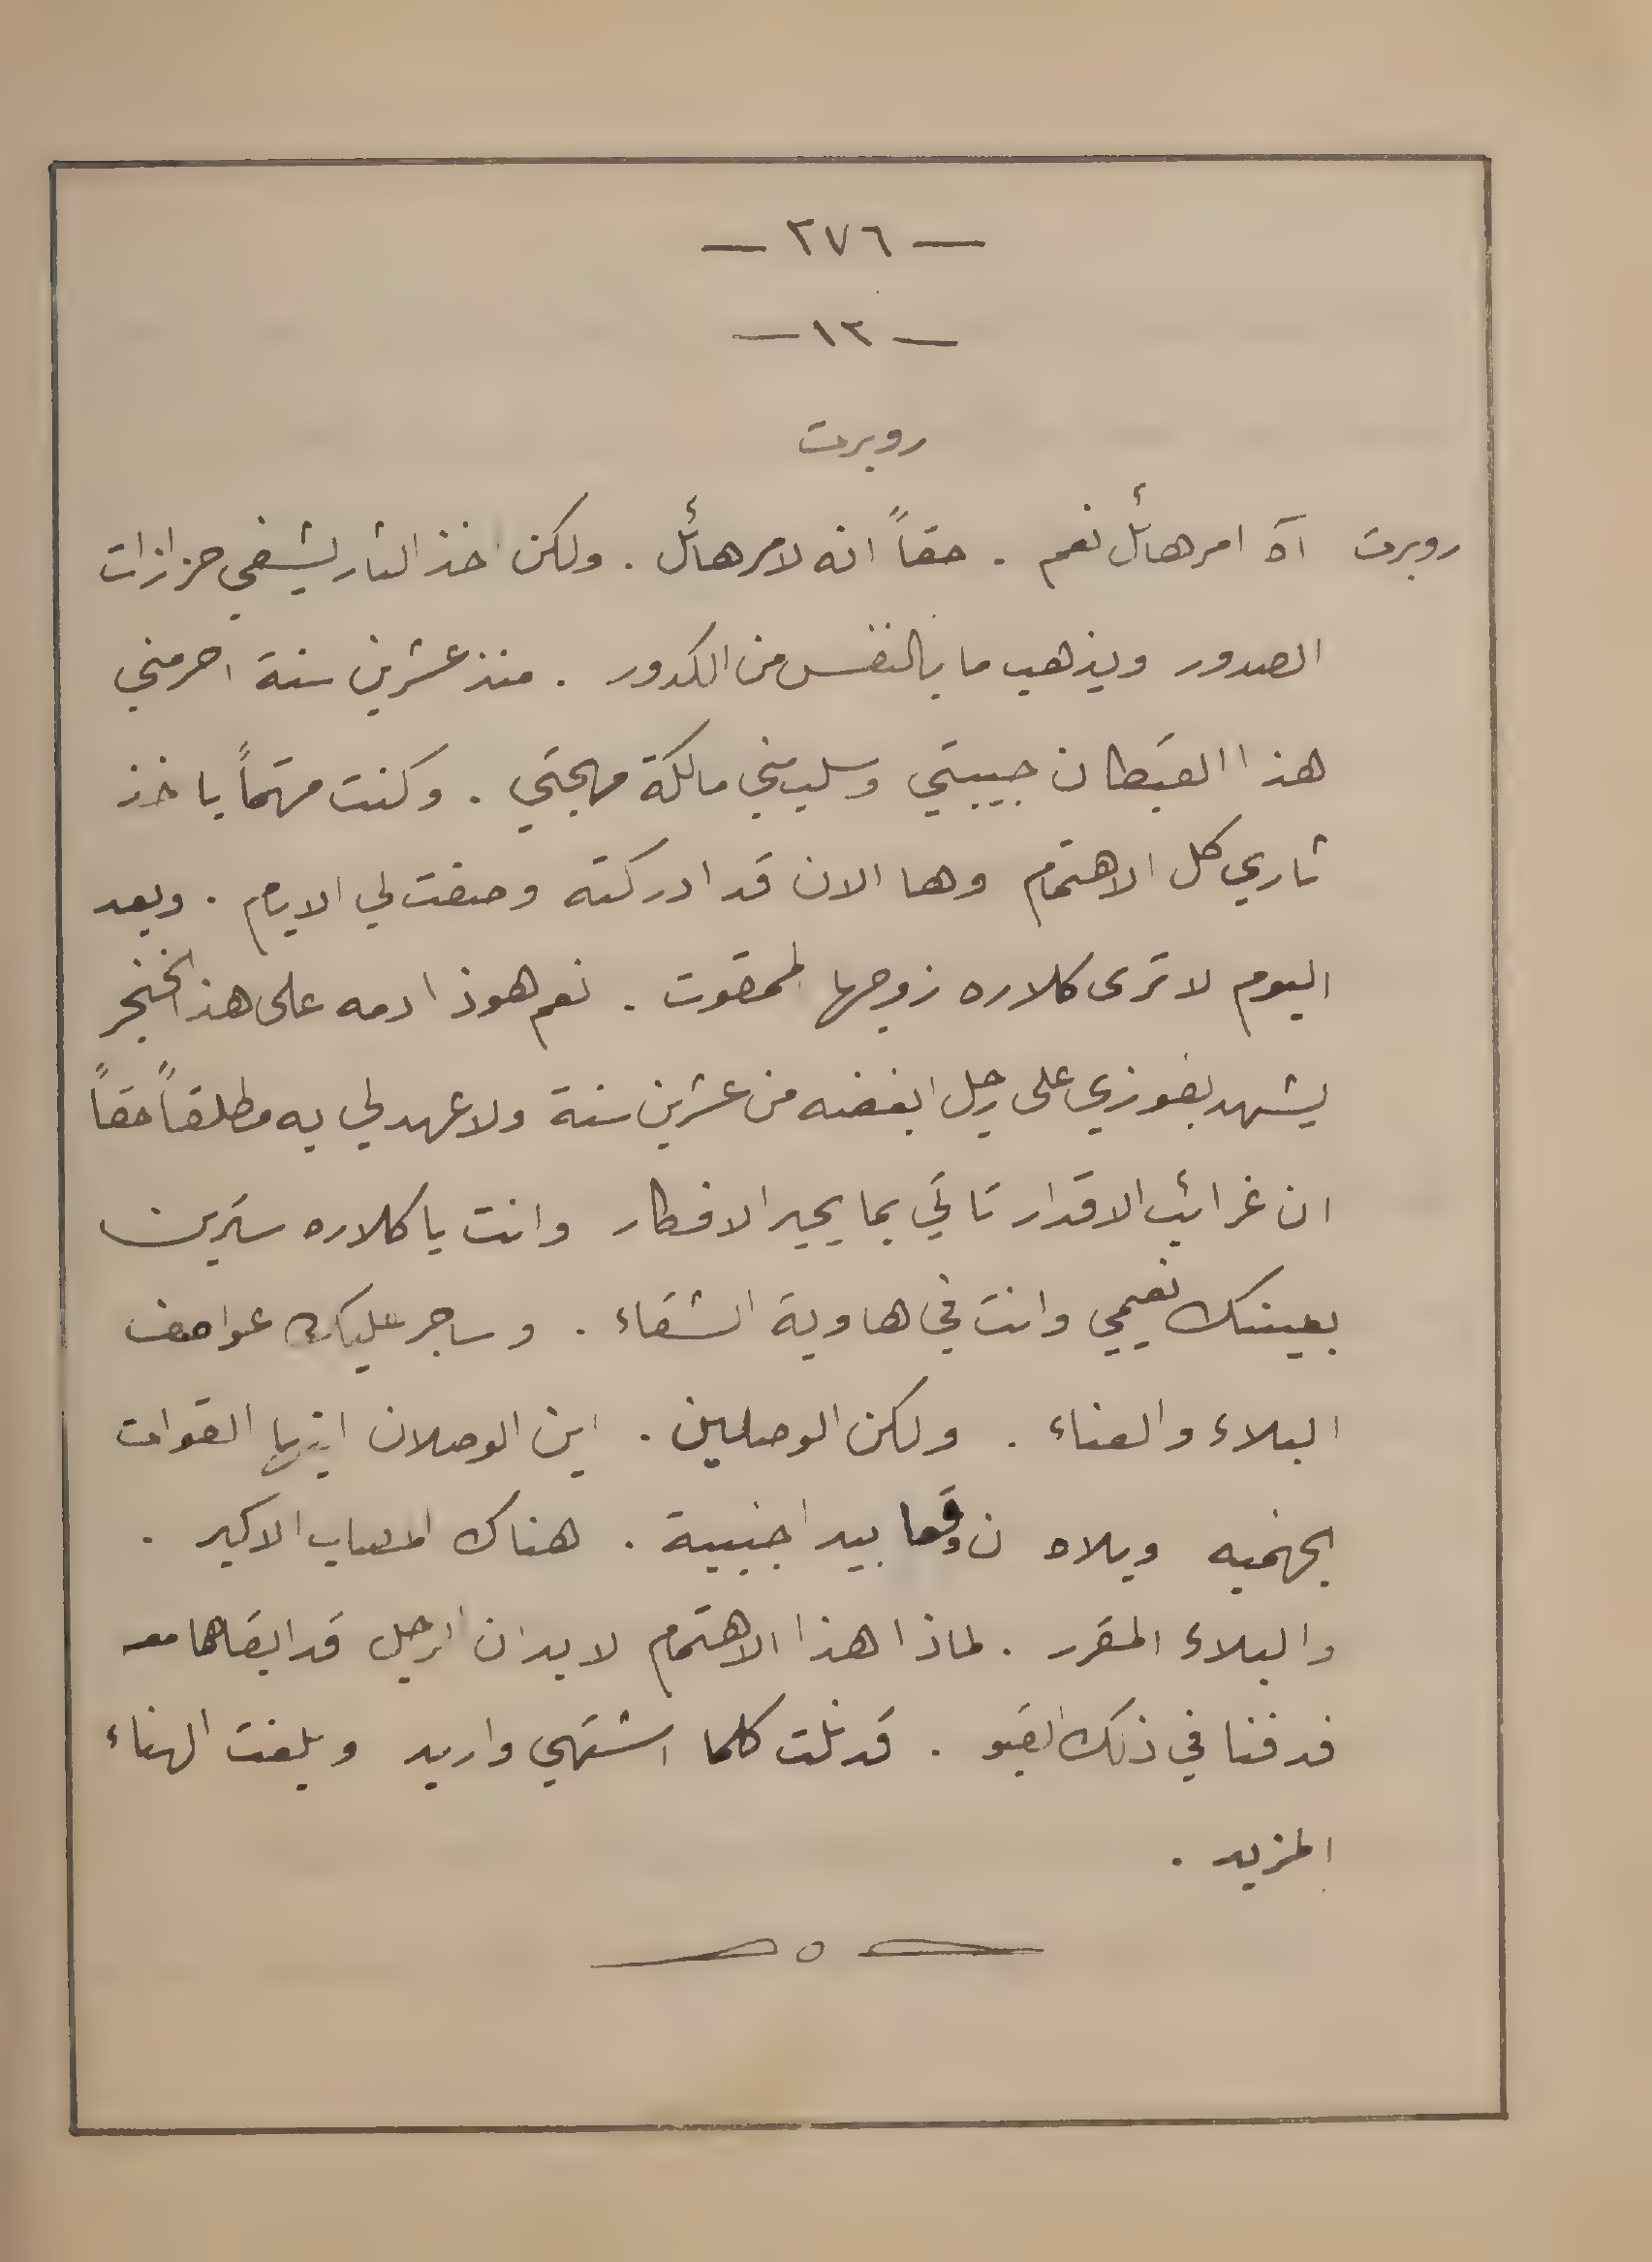 — ٢٧٦ —
— ١٢ —
روبرت
روبرت آه امر هائل نعم . حقاً انه لامر هائل . ولكن اخذ الثار ليشفي حزازات
الصدور ويذهب ما بالنفس من الكدور . منذ عشرين سنة احرمني
هذا القبطان حبيبتي وسلب مني مالكة مهجتي . وكنت مهتماً باخذ
ثاري كل الاهتمام وها الان قد ادركته وصفت لي الايام . وبعد
اليوم لا ترى كلاره زوجها الممقوت . نعم هوذا دمه على هذا الخنجر
يشهد بفوزي على رجل ابغضه من عشرين سنة ولا عهد لي به مطلقاً حقاً
ان غرائب الاقدار تاتي بما يحير الافكار وانت يا كلاره سترين
بعينك نعيمي وانت في هاوية الشقاء . وساجر عليك عواصف
البلاء والعناء . ولكن الوصلين . اين الوصلان ايتها القوات
الجهنميه ويلاه ان وقعا بيد اجنبية . هناك المصاب الاكبر .
والبلاء المقرر . لماذا هذا الاهتمام لا بد ان الرجل قد ابقاهما معه
فدفنا في ذلك القبو . قد نلت كلما اشتهي واريد وبلغت الهناء
المزيد .